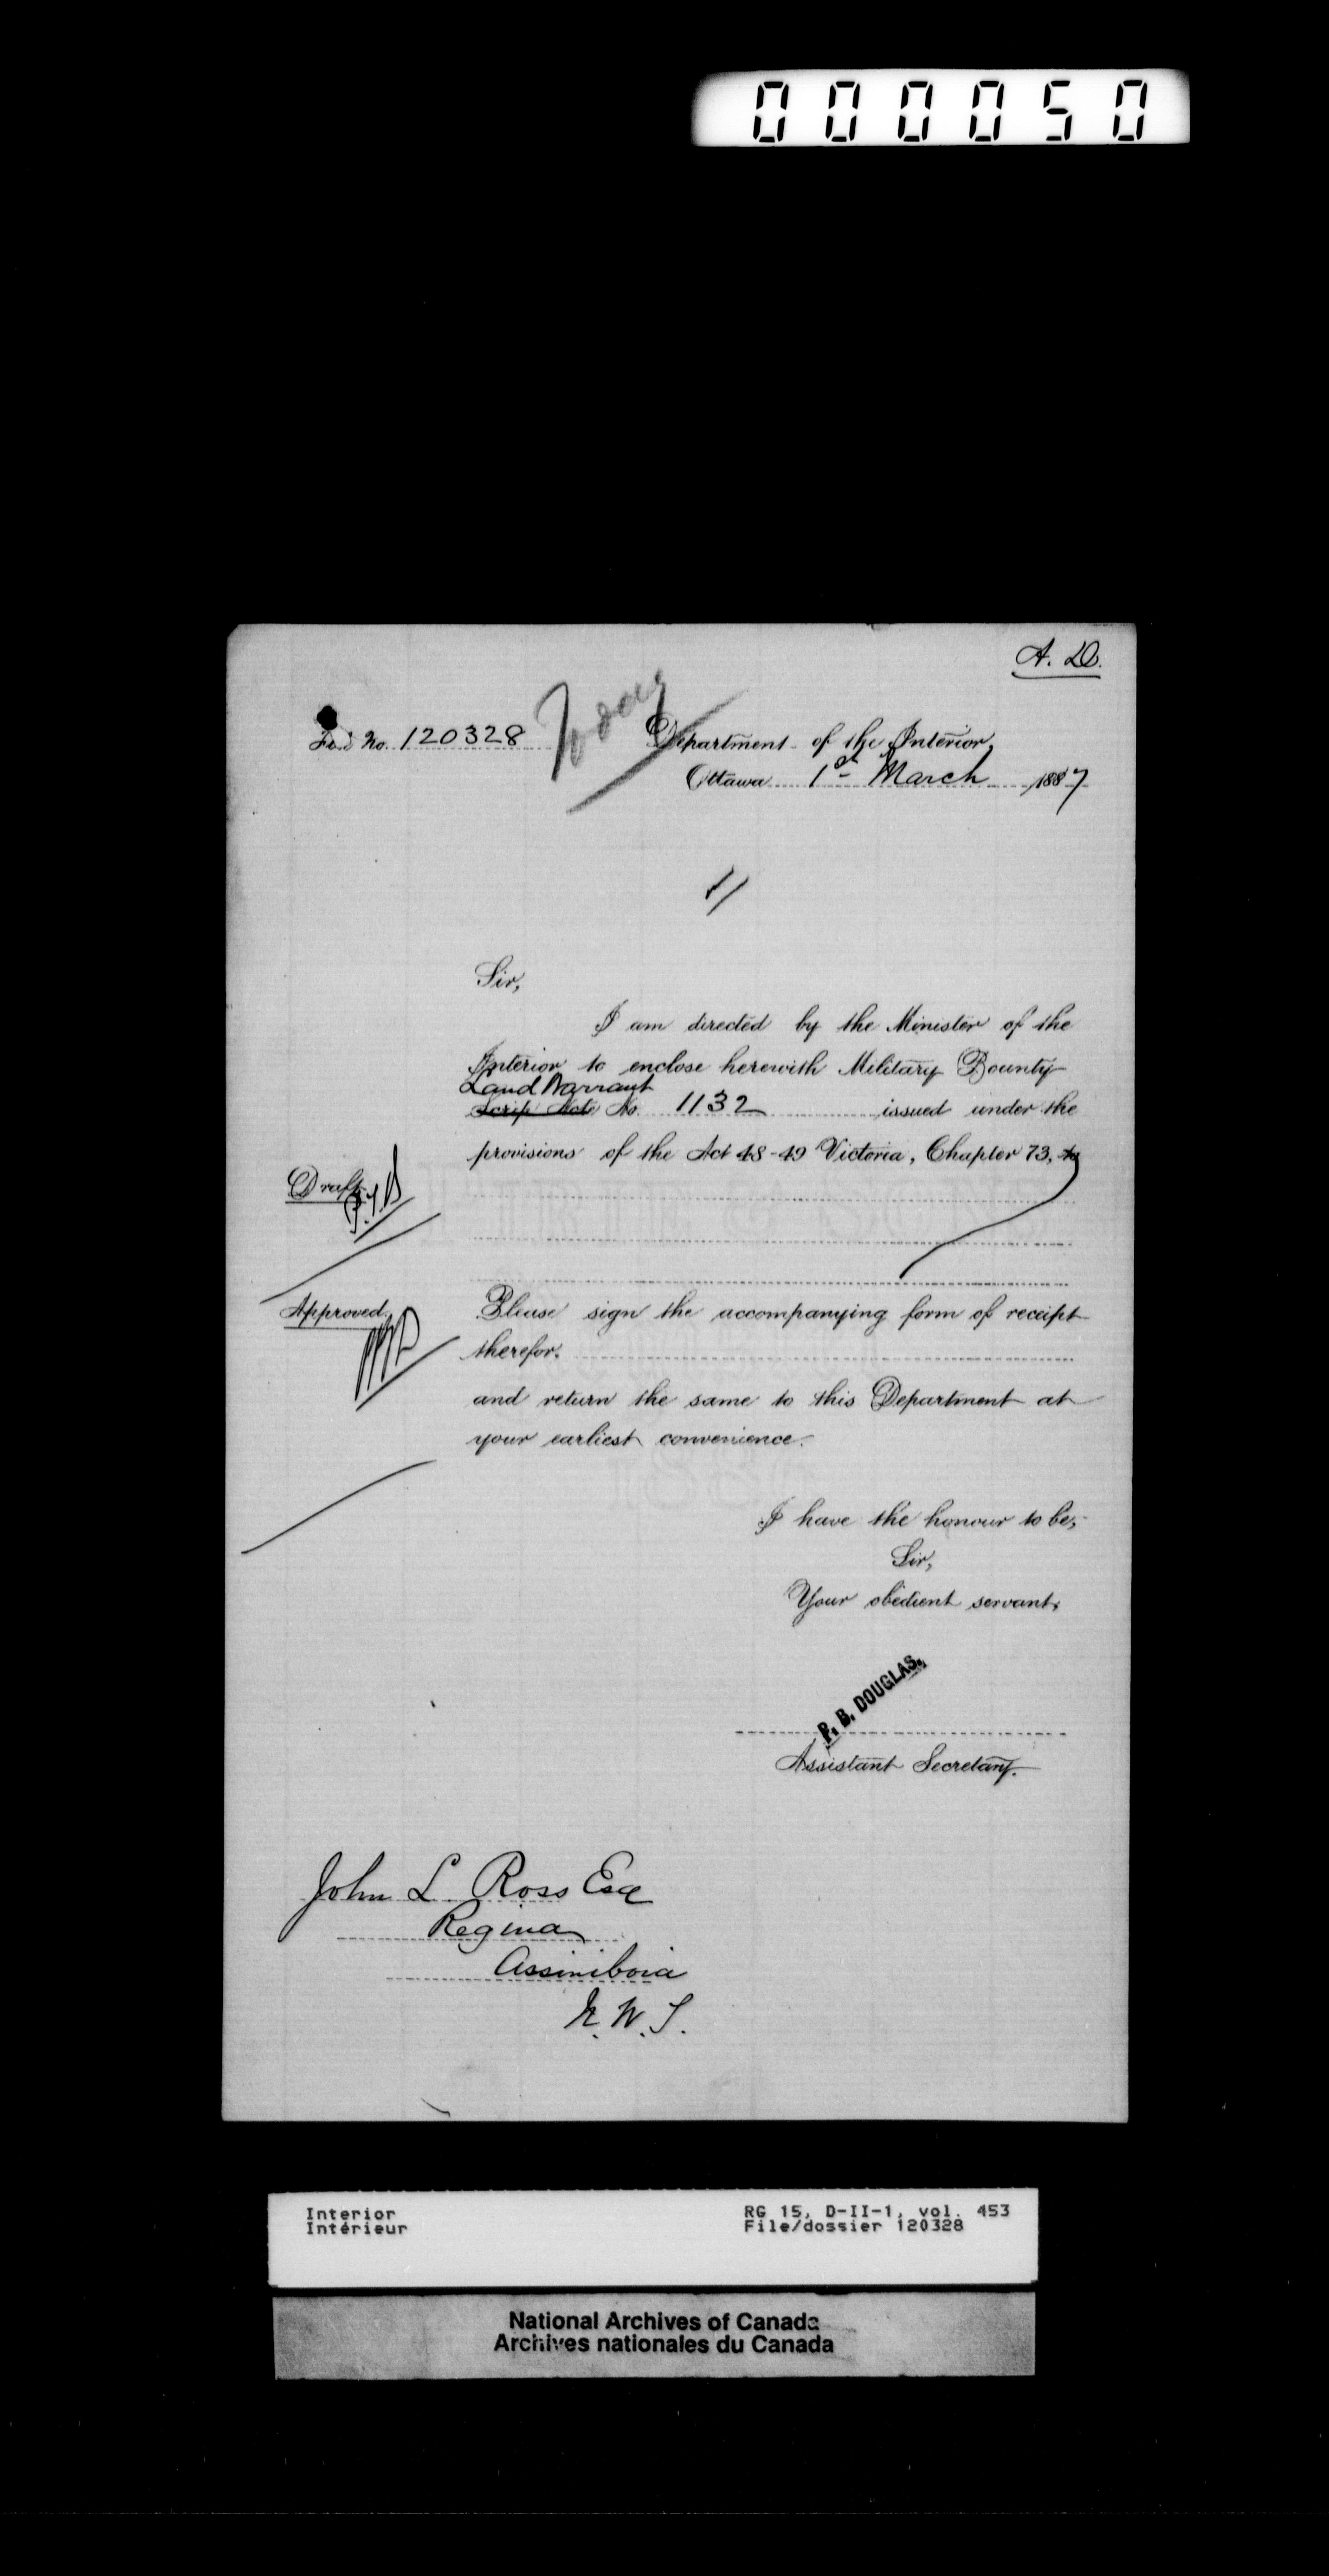 000050
A. D.
No. 120328
Department of the Interior,
Ottawa 1st March 1887
Sir,
I am directed by the Minister of the
Interior to enclose herewith Military Bounty
Land Warrant
Scrip Note No. 1132 issued under the
provisions of the Act 48-49 Victoria, Chapter 73,
Draft
Approved,
Please sign the accompanying form of receipt
therefor.
and return the same to this Department at
your earliest convenience.
1886
I have the honour to be,
Sir,
Your obedient servant,
P. B. DOUGLAS.
Assistant Secretary.
John L. Ross Esq
Regina
Assiniboia
N. W. T.
Interior
Intérieur
RG 15, D-II-1, vol. 453
File/dossier 120328
National Archives of Canada
Archives nationales du Canada